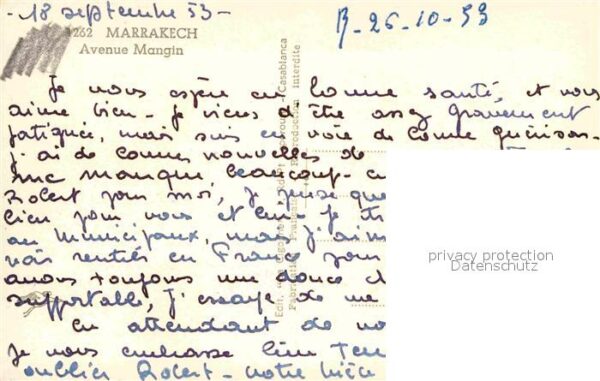 - 18 septembre 53 -
R - 26-10-53
1262 MARRAKECH
Avenue Mangin
Je vous espère en bonne santé, et vous
aime bien - Je viens d'être assez gravement
fatiguée, mais suis en voie de bonne guérison -
j'ai de bonnes nouvelles de
me manque beaucoup -
Robert pour moi, je pense que
bien pour vous et lui - Je
au municipaux, mais j'aim
voir rentrés en France pour
avons toujours une douce ch
supportable, j'essaye de me
En attendant de vo
Je vous embrasse bien Ten
oublier Robert - votre
Edit. "La Cigogne" - Casablanca
Fabrication Française - Reproduction Interdite
privacy protection
Datenschutz